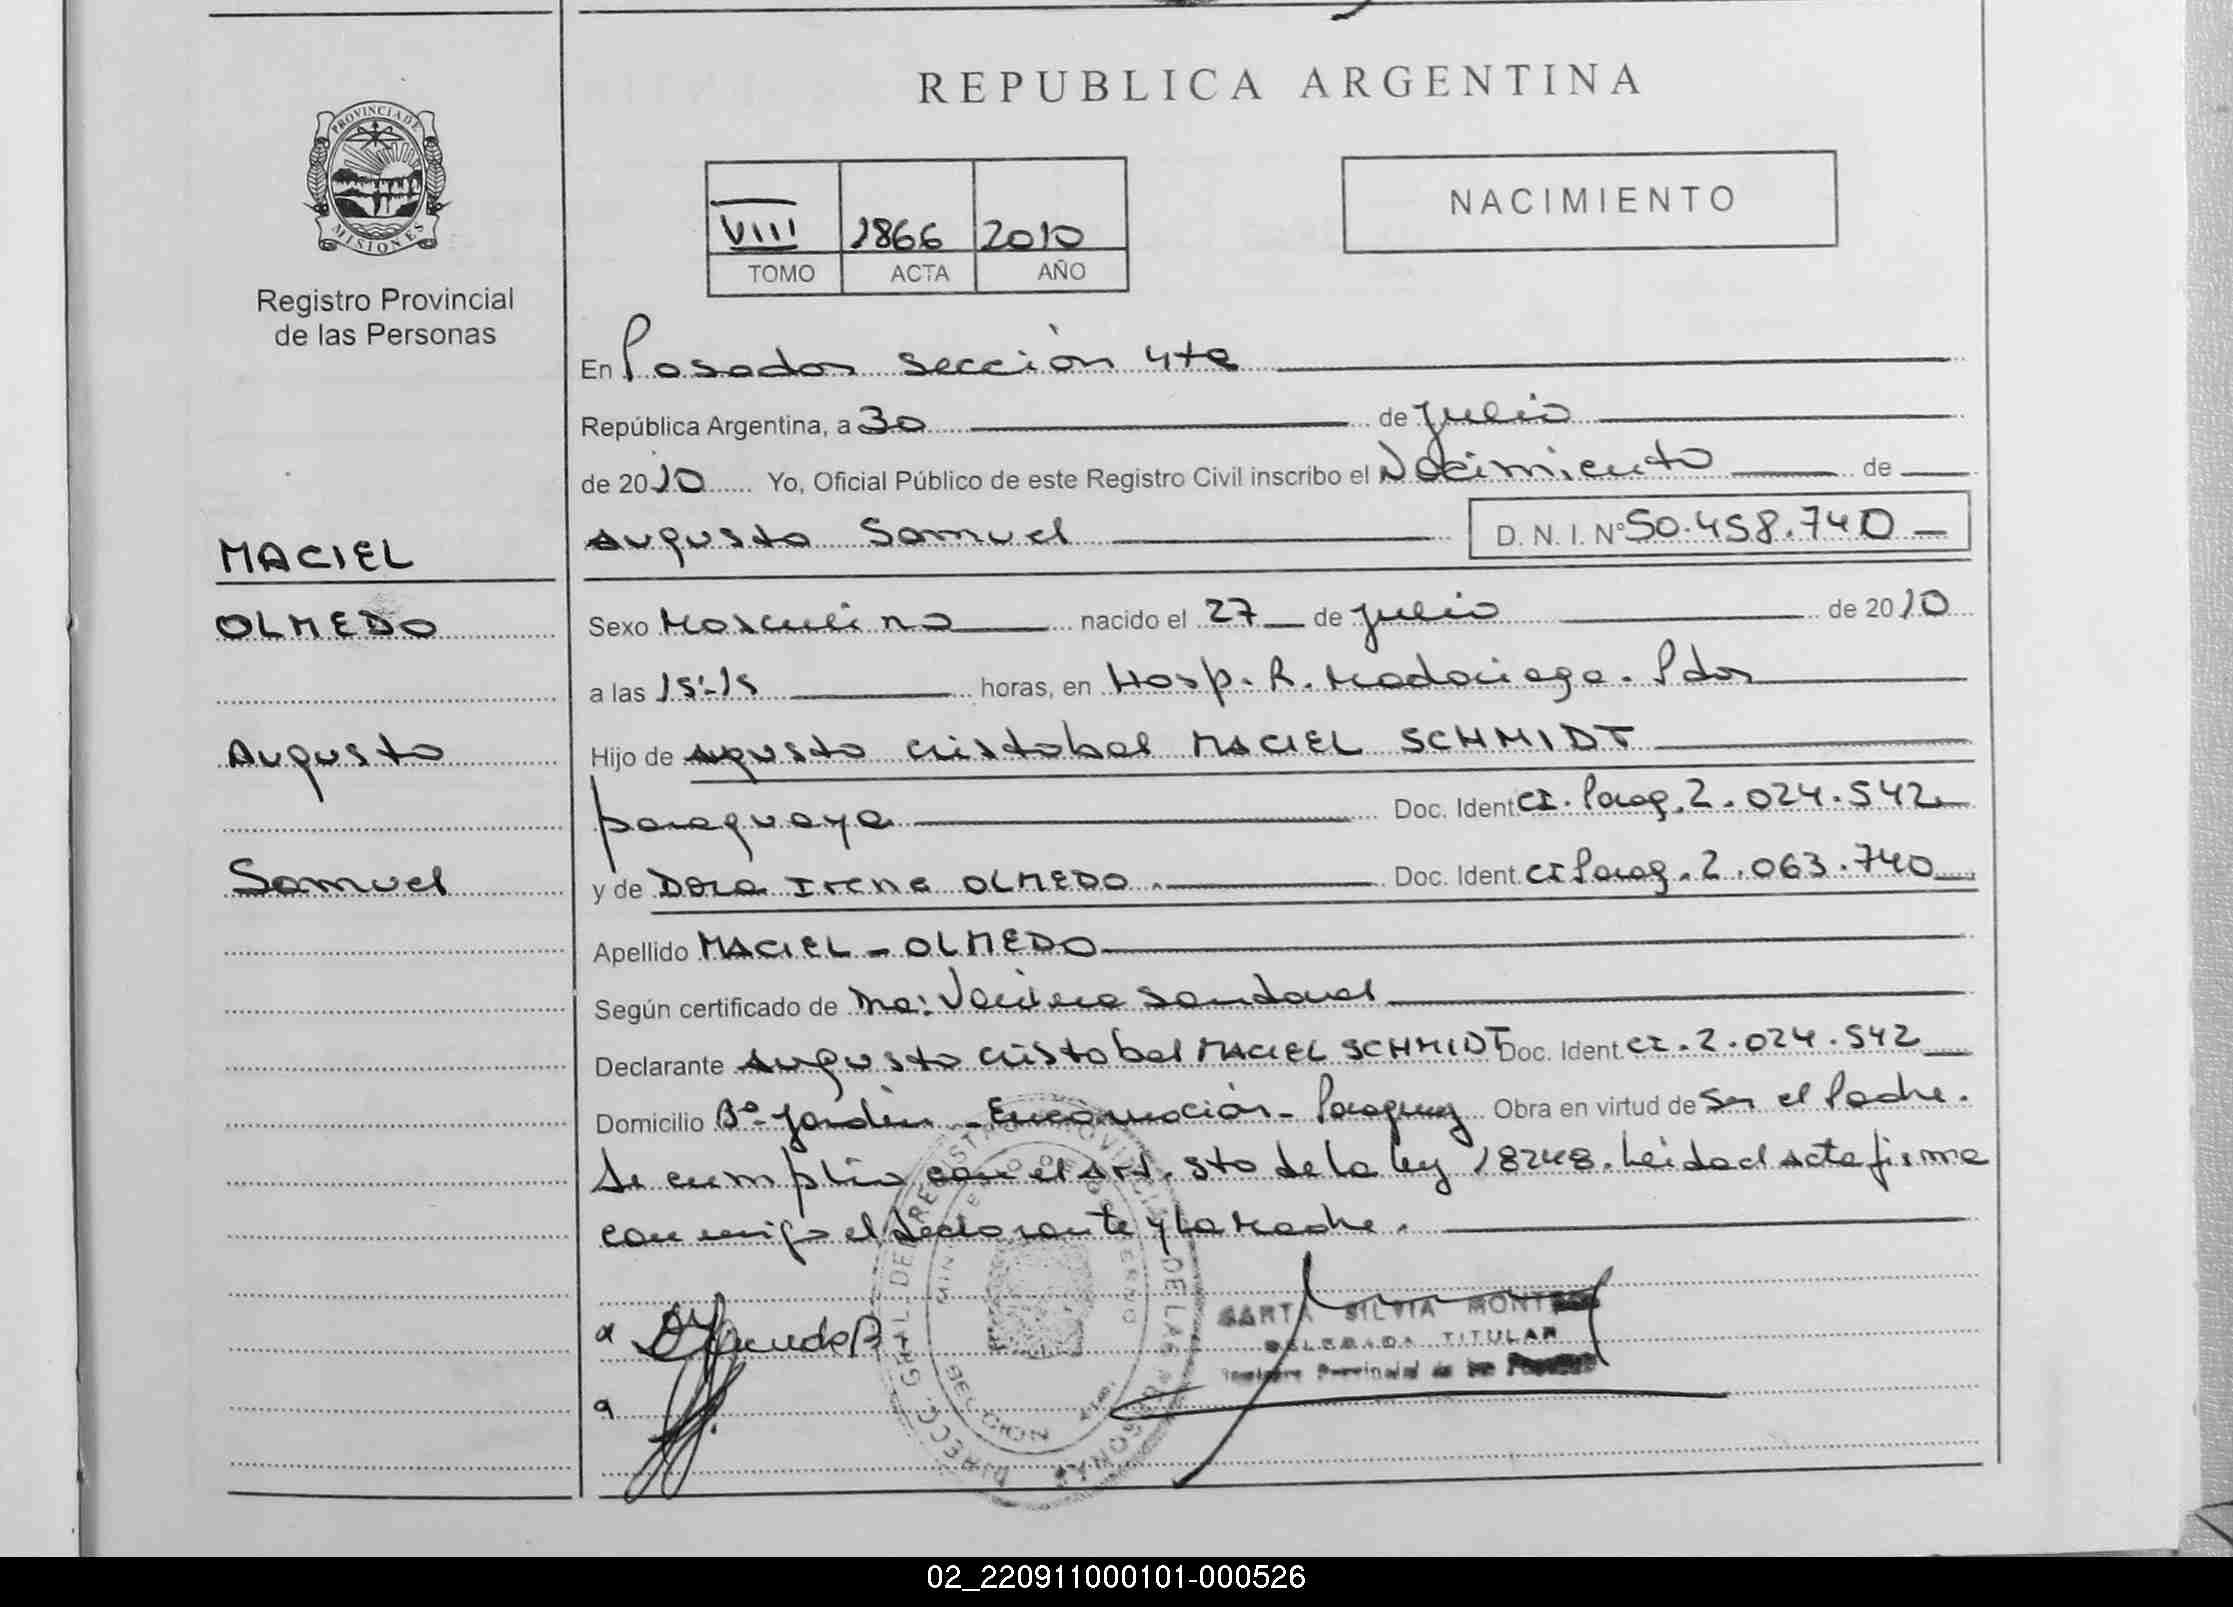 REPUBLICA ARGENTINA
PROVINCIA DE
MISIONES
Registro Provincial
de las Personas
NACIMIENTO
VIII 1866 2010
TOMO ACTA AÑO
En Posadas sección 4ta
República Argentina, a 30 de julio
de 2010 Yo, Oficial Público de este Registro Civil inscribo el Nacimiento de
Augusto Samuel D. N. I. Nº 50.458.740
MACIEL
OLMEDO
Augusto
Samuel
Sexo Masculino nacido el 27 de julio de 2010
a las 15:15 horas, en Hosp. R. Madariaga. Pdas
Hijo de Agusto Cristobal MACIEL SCHMIDT
paraguaya Doc. Ident CI. Parag. 2.024.542
y de Dora Irene OLMEDO. Doc. Ident. CI Parag. 2.063.740
Apellido MACIEL - OLMEDO
Según certificado de Sandoval
Declarante Augusto Cristobal MACIEL SCHMIDT Doc. Ident CI. 2.024.542
Domicilio Bº Jardín - Encarnación - Paraguay Obra en virtud de ser el Padre.
Se cumplio con el Art. 5to de la ley 18248. Leida el Acta firma
conmigo el declarante y la Madre.
DIRECC. GRAL. DEL REGISTRO PROVINCIAL DE LAS PERSONAS
MINISTERIO DE GOBIERNO
SECCION 4TA.
SILVIA
DELEGADA TITULAR
Registro Provincial de las
02_220911000101-000526